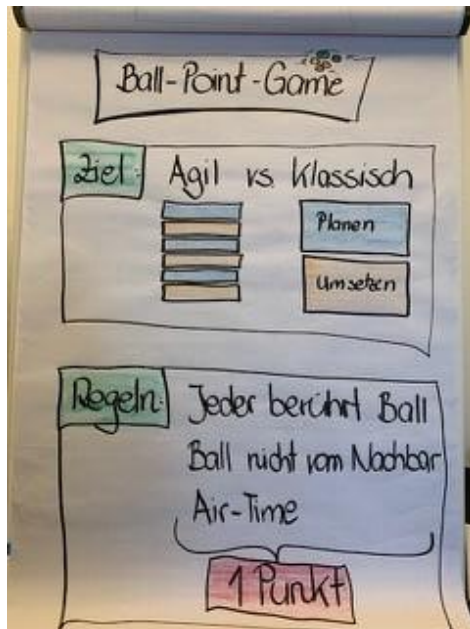 Ball-Point-Game
Ziel: Agil vs. Klassisch
Planen
Umsetzen
Regeln: Jeder berührt Ball
Ball nicht vom Nachbar
Air-Time
1 Punkt